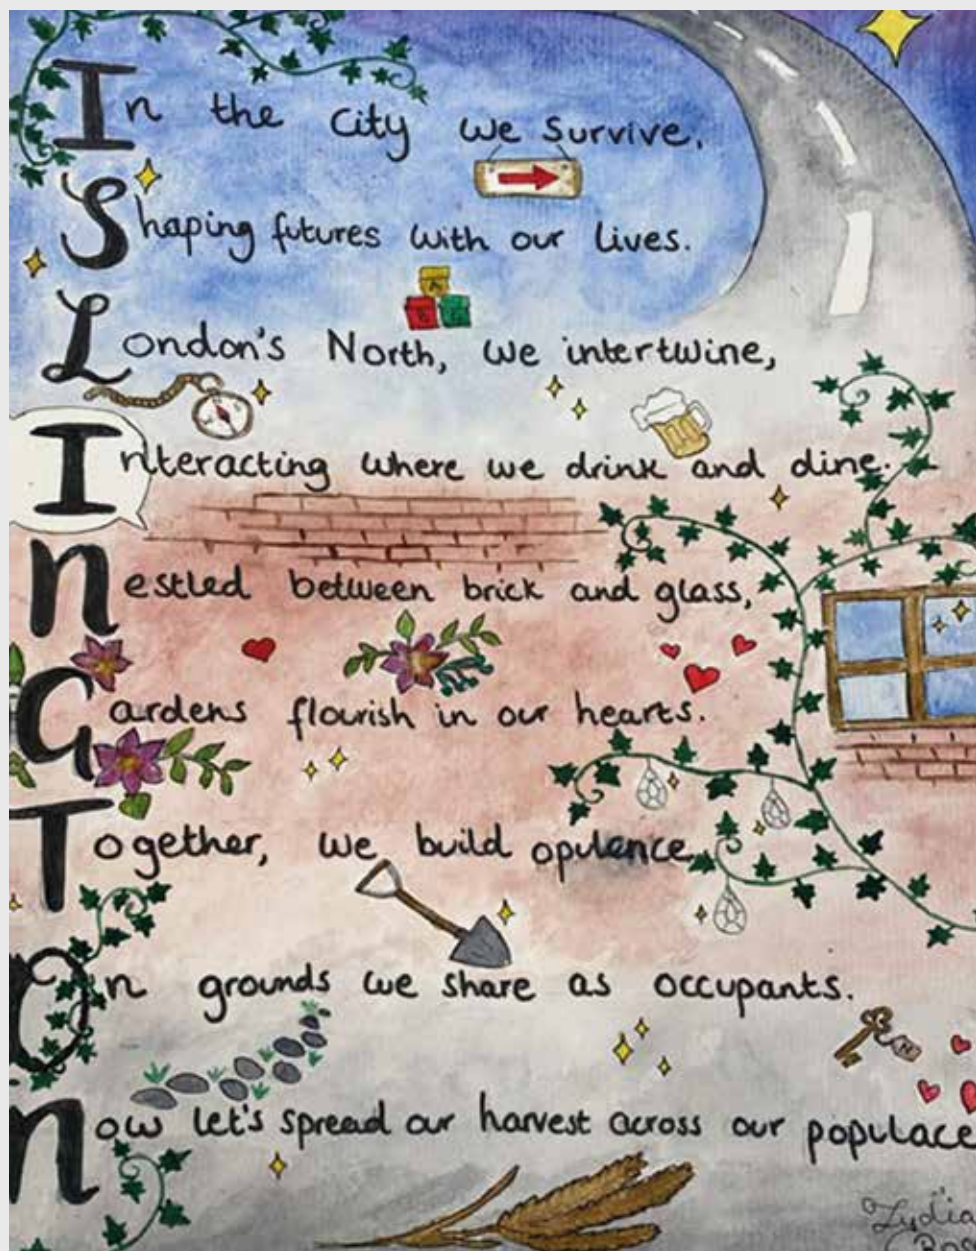 In the city we survive,
Shaping futures with our lives.
London's North, we intertwine,
Interacting where we drink and dine.
nestled between brick and glass,
Gardens flourish in our hearts.
Together, we build opulence
On grounds we share as occupants.
now let's spread our harvest across our populace
Lydia